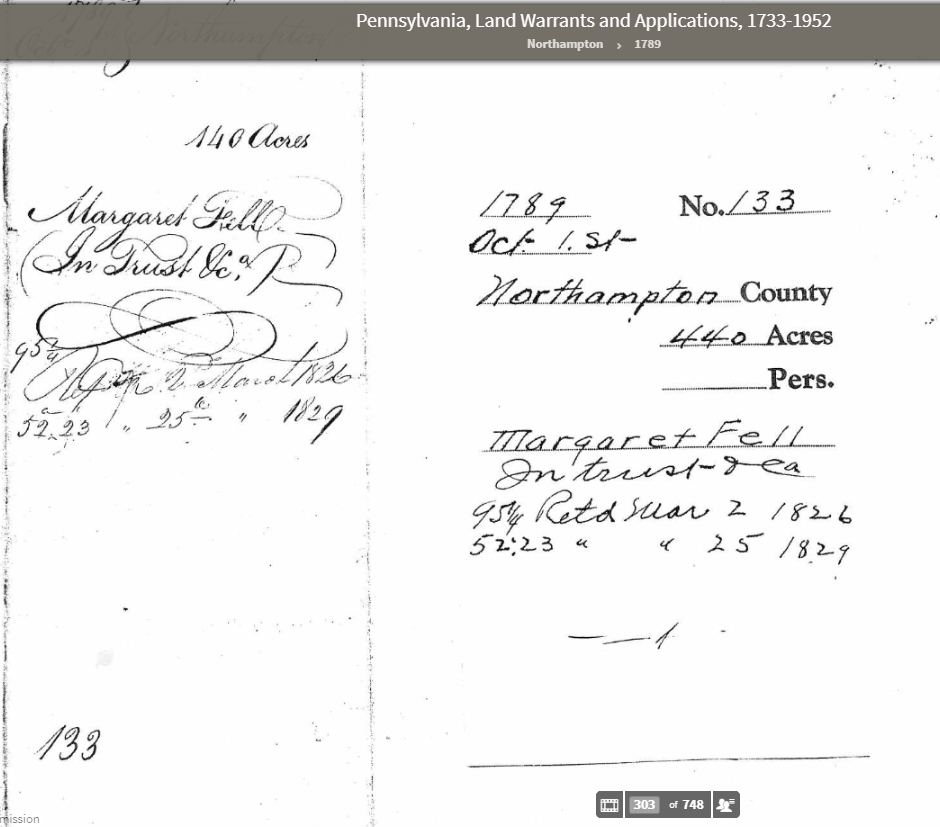 Pennsylvania, Land Warrants and Applications, 1733-1952
Northampton › 1789
Northampton
140 Acres
Margaret Fell
(In Trust &c.a)
95 1/4
2 March 1826
52.23 " 25th " 1829
133
1789 No. 133
Oct. 1.st
Northampton County
440 Acres
Pers.
Margaret Fell
In trust &ca
95 1/4 Retd Mar 2 1826
52:23 " " 25 1829
303 of 748
mission